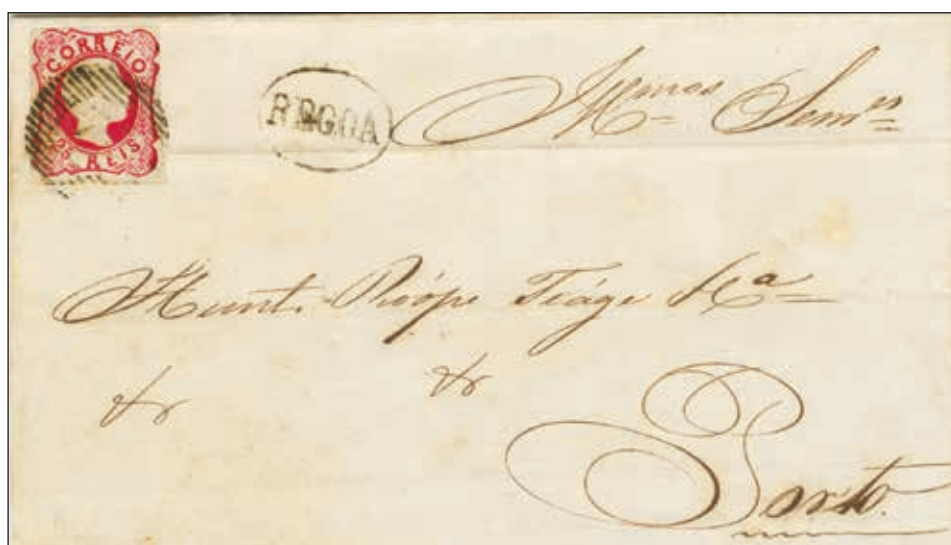 CORREIO
25 REIS
REGOA
Senr.es
Hunt. Roópe Teáge & Ca
& &
Porto.